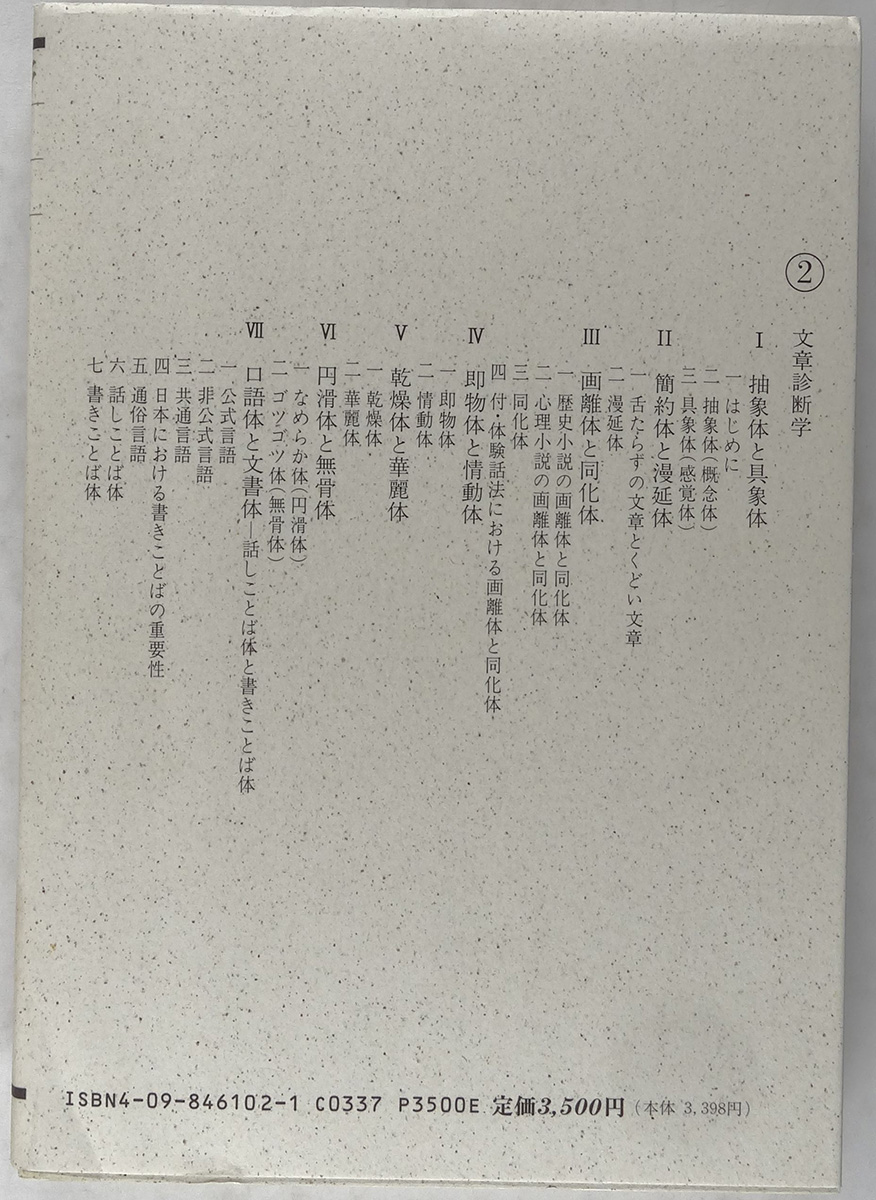 ②
文章診断学
Ⅰ 抽象体と具象体
一 はじめに
二 抽象体（概念体）
三 具象体（感覚体）
Ⅱ 簡約体と漫延体
一 舌たらずの文章とくどい文章
二 漫延体
Ⅲ 画離体と同化体
一 歴史小説の画離体と同化体
二 心理小説の画離体と同化体
三 同化体
四 付・体験話法における画離体と同化体
Ⅳ 即物体と情動体
一 即物体
二 情動体
Ⅴ 乾燥体と華麗体
一 乾燥体
二 華麗体
Ⅵ 円滑体と無骨体
一 なめらか体（円滑体）
二 ゴツゴツ体（無骨体）
Ⅶ 口語体と文書体―話しことば体と書きことば体
一 公式言語
二 非公式言語
三 共通言語
四 日本における書きことばの重要性
五 通俗言語
六 話しことば体
七 書きことば体
ISBN4-09-846102-1 C0337 P3500E 定価3,500円（本体 3,398円）